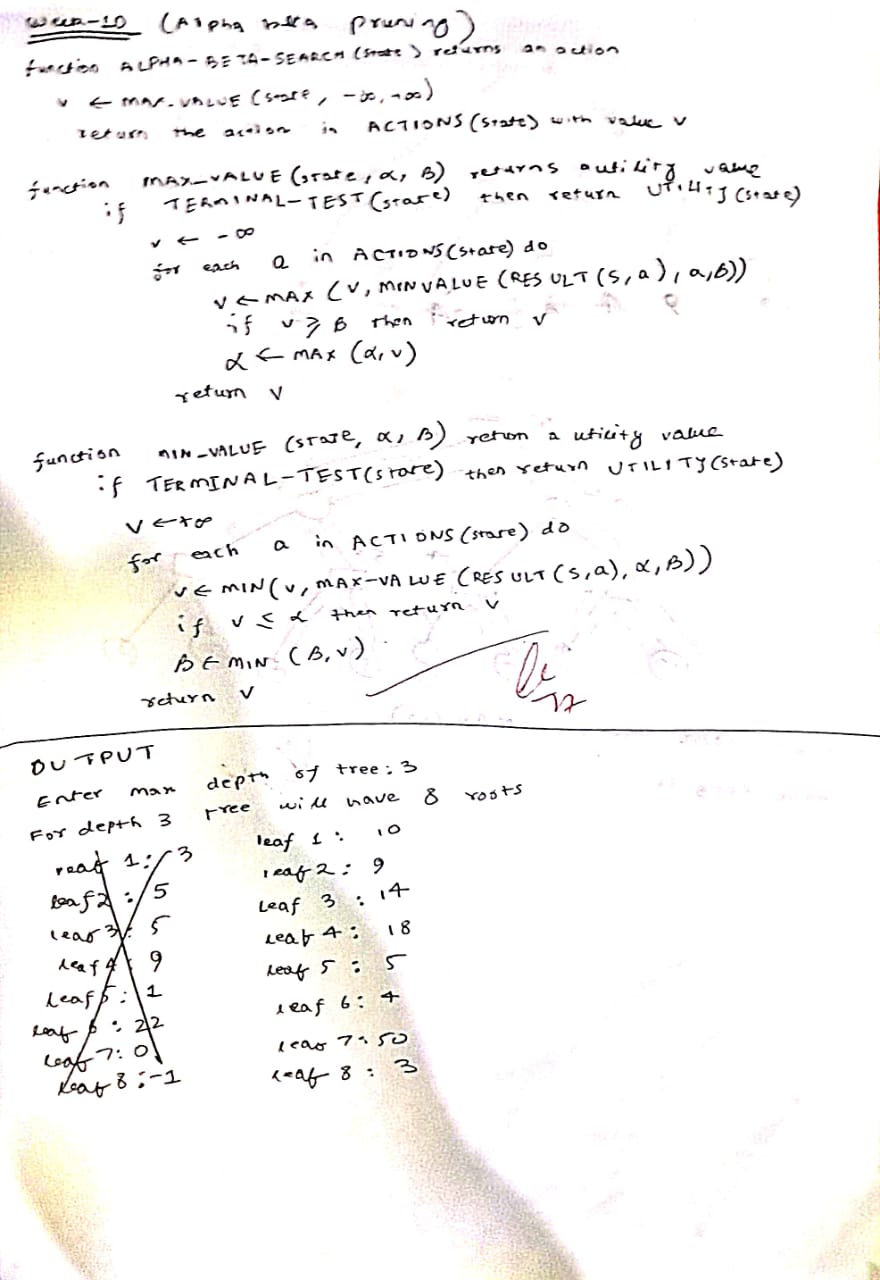 Week-10 (Alpha beta pruning)
function ALPHA-BETA-SEARCH (state) returns an action
v ← MAX-VALUE (state, -∞, +∞)
return the action in ACTIONS (state) with value v
function MAX_VALUE (state, α, β) returns a utility value
if TERMINAL-TEST (state) then return UTILITY (state)
v ← -∞
for each a in ACTIONS (state) do
v ← MAX (v, MINVALUE (RESULT (s, a), a, β))
if v ≥ β then return v
α ← MAX (α, v)
return v
function MIN_VALUE (state, α, β) return a utility value
if TERMINAL-TEST (state) then return UTILITY (state)
v ← +∞
for each a in ACTIONS (state) do
v ← MIN (v, MAX-VALUE (RESULT (s, a), α, β))
if v ≤ α then return v
β ← MIN (β, v)
return v
OUTPUT
Enter max depth of tree: 3
For depth 3 tree will have 8 roots
leaf 1: 3
leaf 2: 5
leaf 3: 5
leaf 4: 9
leaf 5: 1
leaf 6: 22
leaf 7: 0
leaf 8: -1
leaf 1: 10
leaf 2: 9
leaf 3: 14
leaf 4: 18
leaf 5: 5
leaf 6: 4
leaf 7: 50
leaf 8: 3